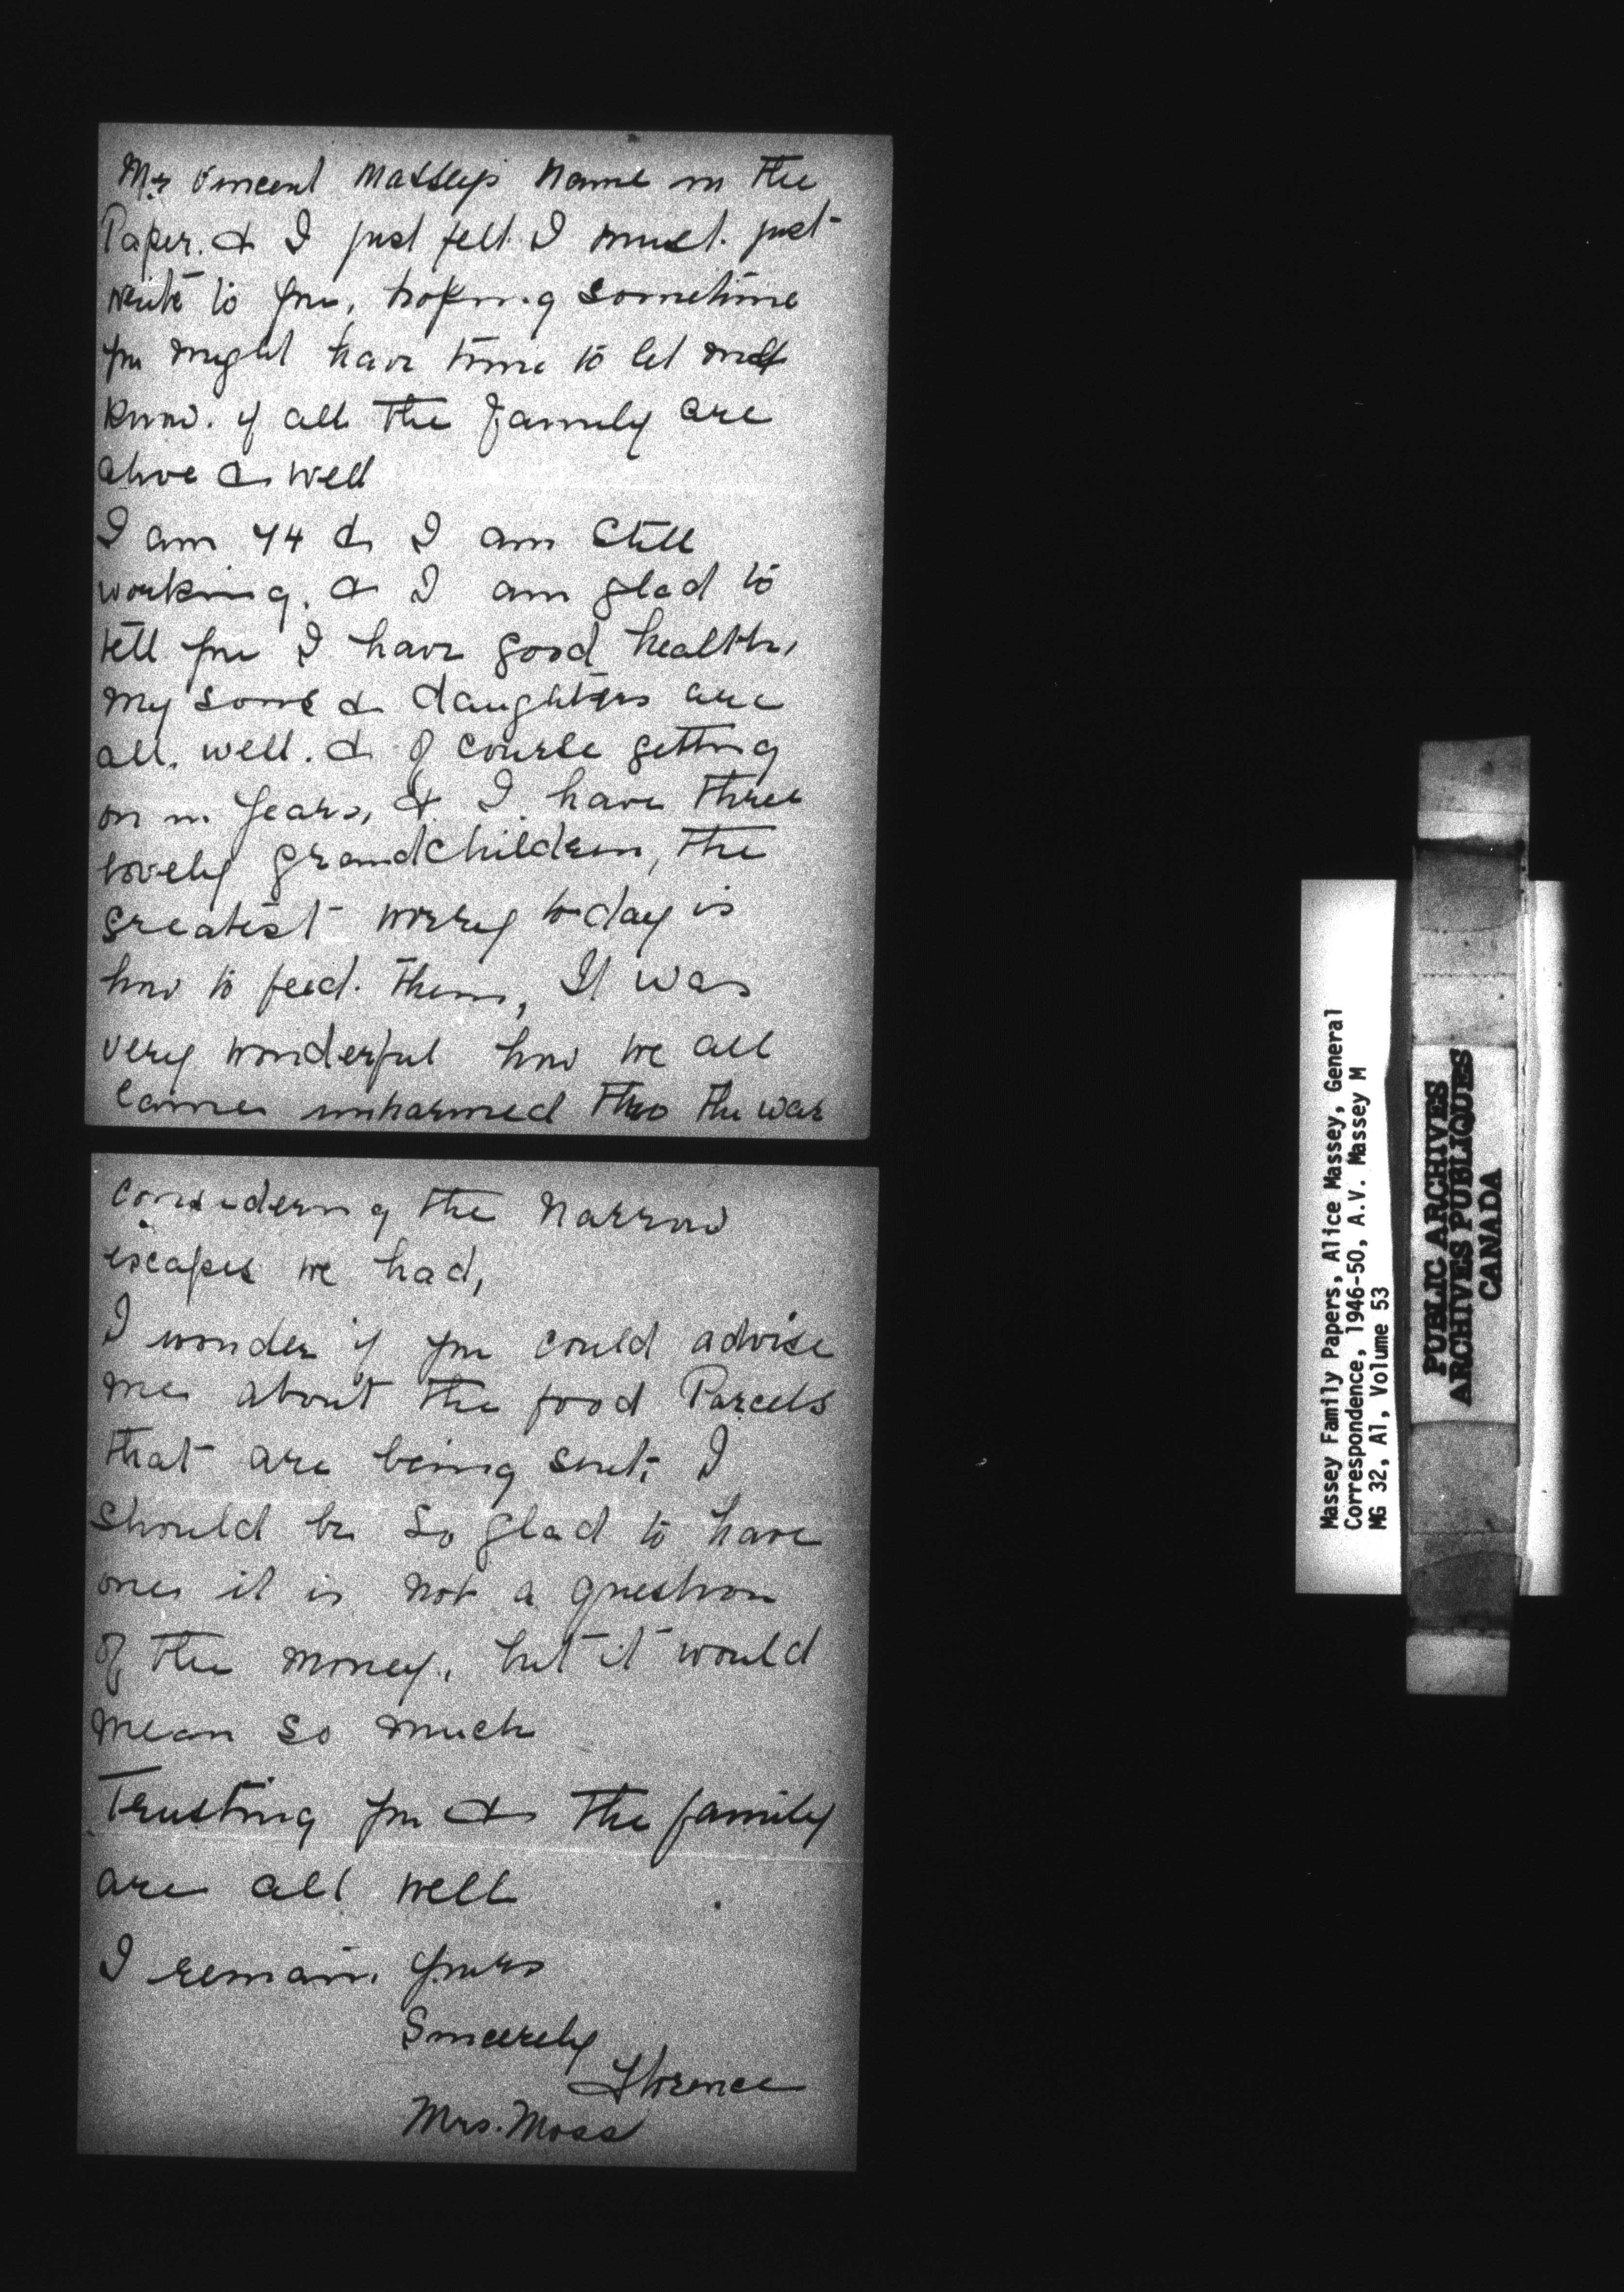 Mr Vincent Massey's name in the
Paper. & I just felt I must. just
write to you, hoping sometime
you might have time to let me
know. if all the family are
alive & well
I am 74 & I am Still
working. & I am glad to
tell you I have good health,
my sons & daughters are
all. well. & of course getting
on in years, & I have three
lovely grandchildren, the
greatest worry today is
how to feed. them, It was
very wonderful how we all
Came unharmed thro the war
considering the narrow
escapes we had,
I wonder if you could advise
me about the food Parcels
that are being sent; I
should be so glad to have
one, it is not a question
of the money, but it would
mean so much
Trusting you & the family
are all well
I remain, yours
Sincerely
Florence
Mrs. Moss
Massey Family Papers, Alice Massey, General
Correspondence, 1946-50, A.V. Massey M
MG 32, A1, Volume 53
PUBLIC ARCHIVES
ARCHIVES PUBLIQUES
CANADA